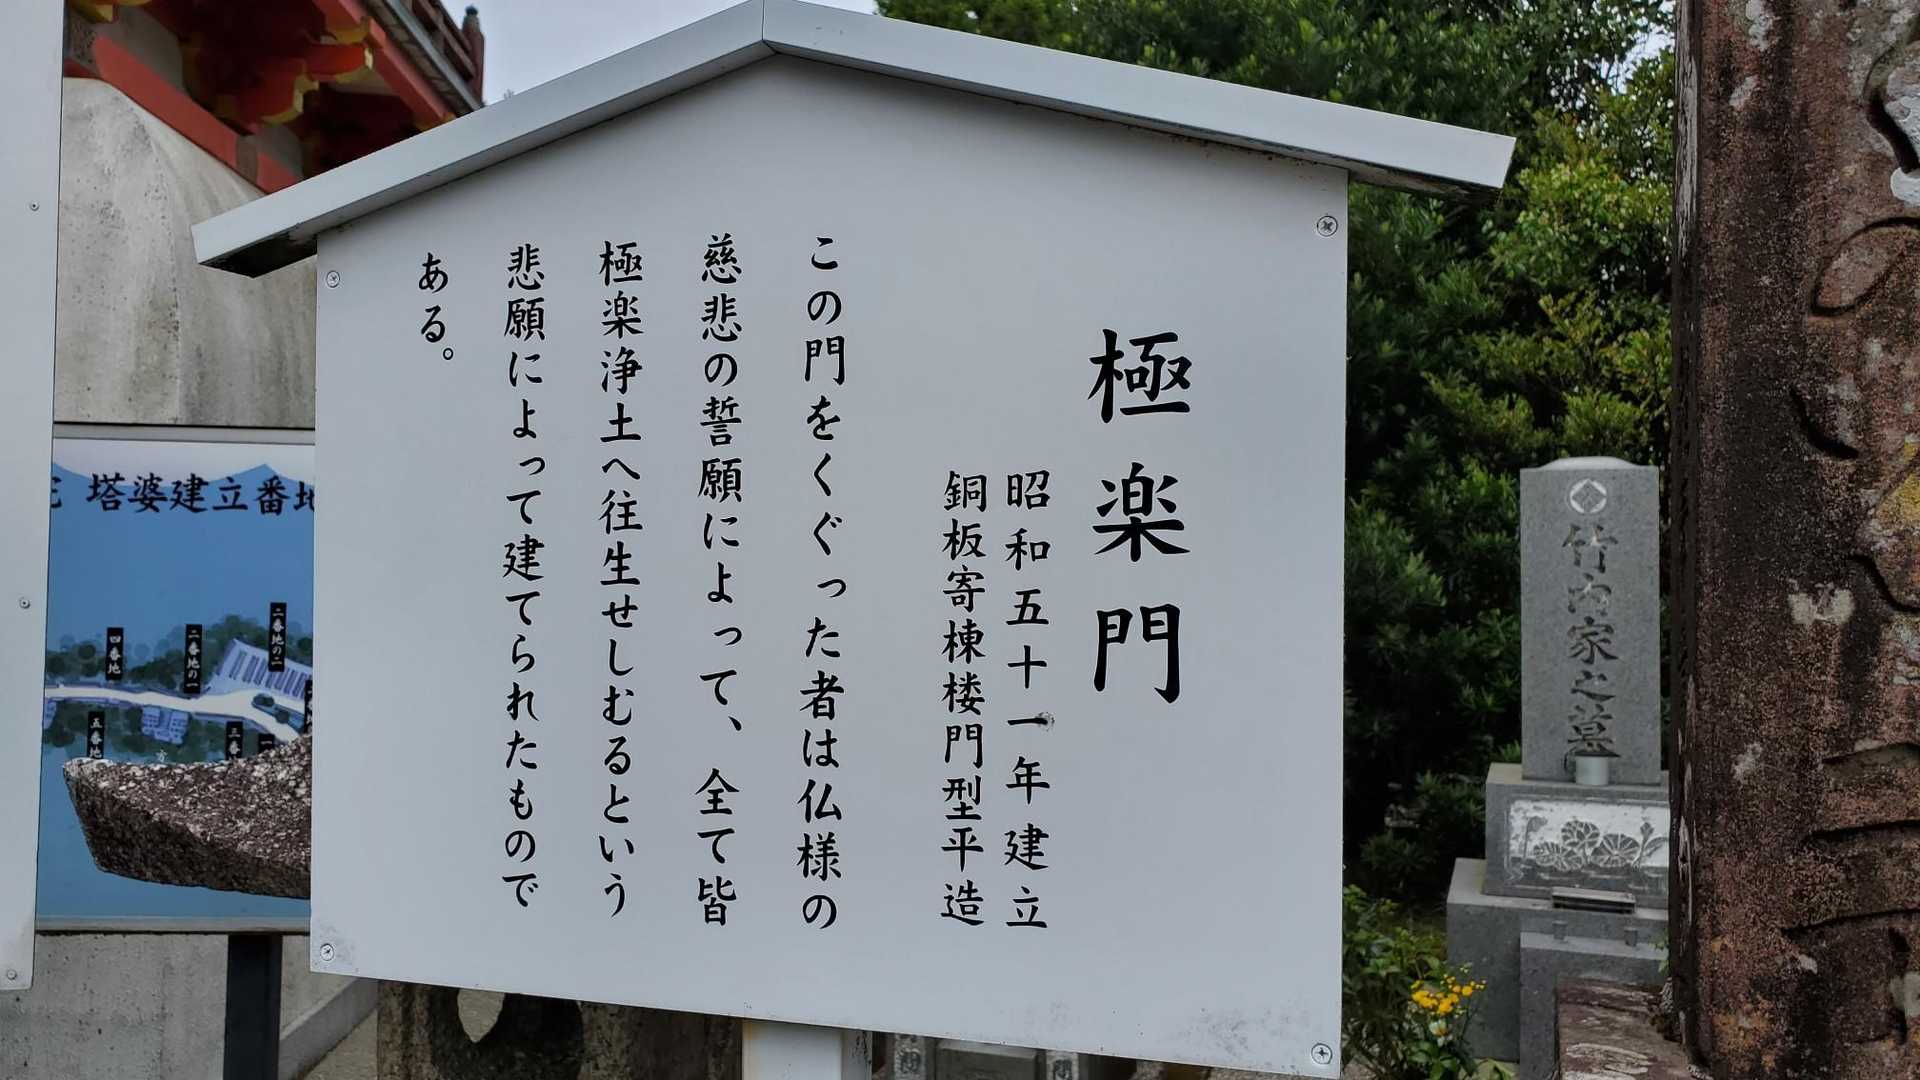 極楽門
昭和五十一年建立
銅板寄棟楼門型平造
この門をくぐった者は仏様の
慈悲の誓願によって、全て皆
極楽浄土へ往生せしむるという
悲願によって建てられたもので
ある。
塔婆建立番地
四番地
二番地の一
二番地の二
五番地
三番
竹内家之墓